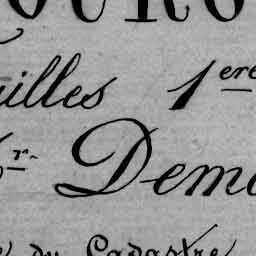 OURG
uilles 1ere
r Dem
du Cadastre